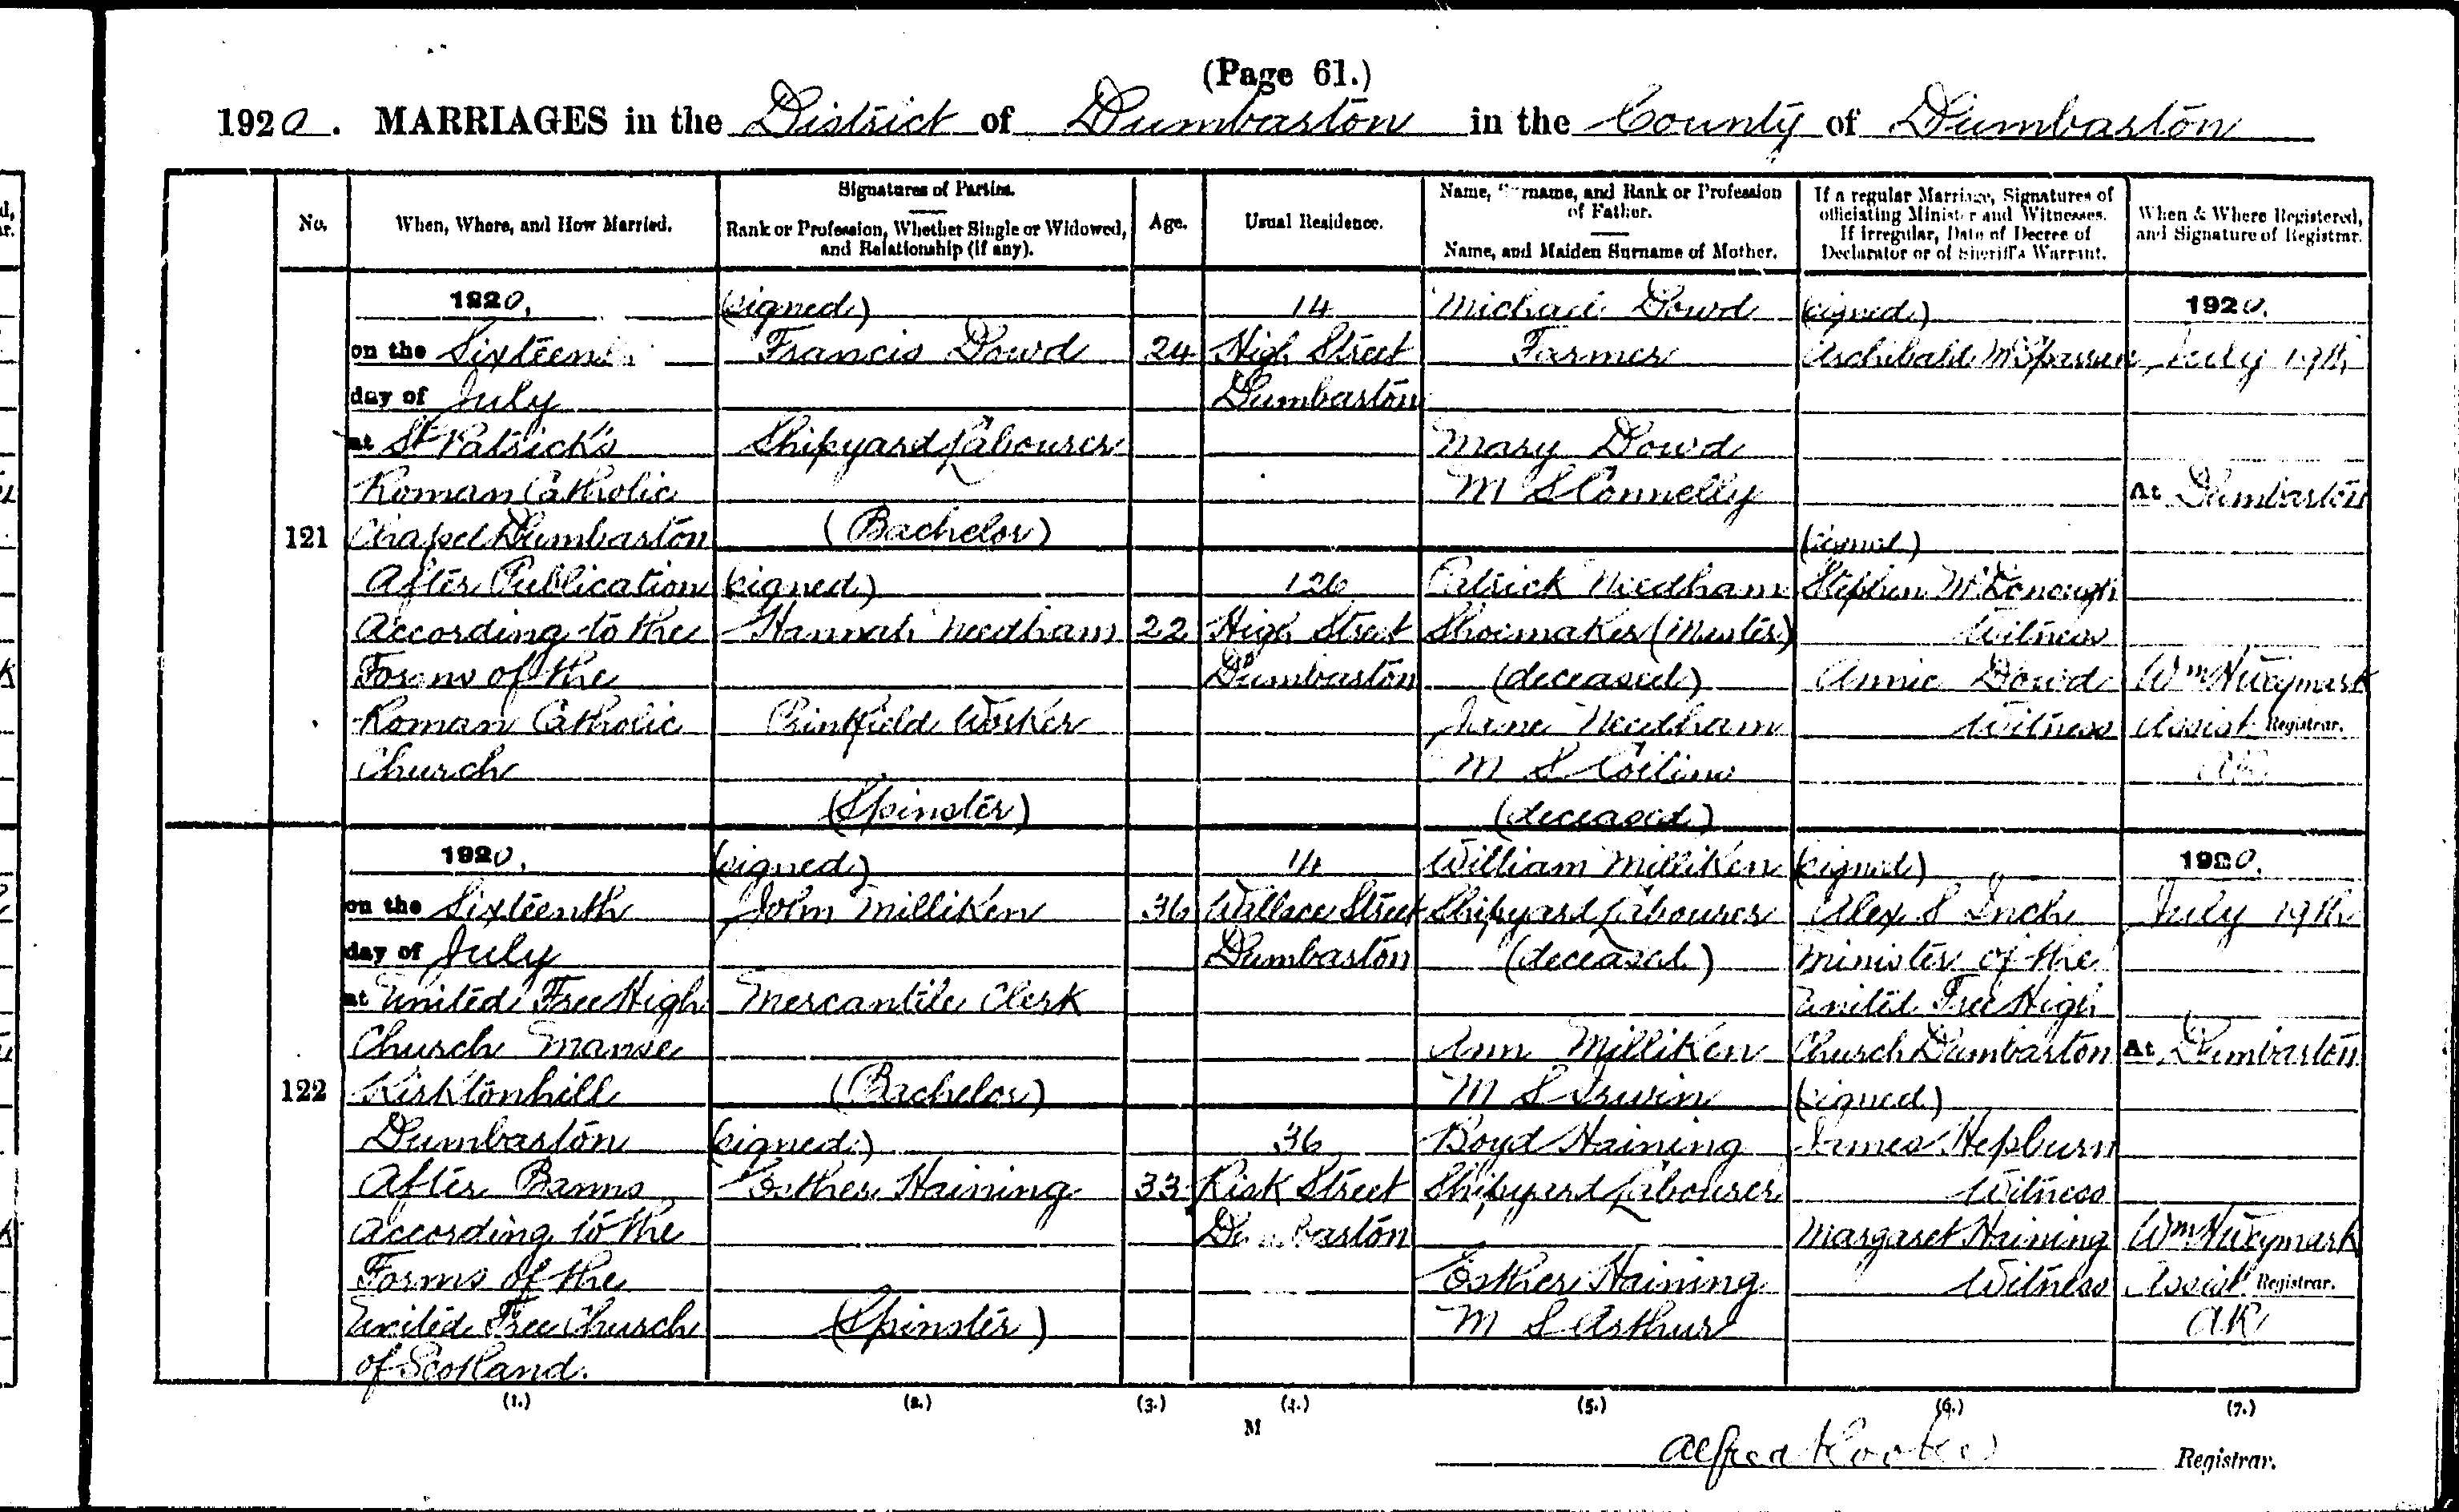 (Page 61.)
1920. MARRIAGES in the District of Dumbarton in the County of Dumbarton
No.
When, Where, and How Married.
Signatures of Parties.
Rank or Profession, Whether Single or Widowed,
and Relationship (if any).
Age.
Usual Residence.
Name, Surname, and Rank or Profession
of Father.
Name, and Maiden Surname of Mother.
If a regular Marriage, Signatures of
officiating Minister and Witnesses.
If irregular, Date of Decree of
Declarator or of Sheriff's Warrant.
When & Where Registered,
and Signature of Registrar.
121
1920.
on the Sixteenth
day of July
at St Patrick's
Roman Catholic
Chapel Dumbarton
After Publication
According to the
Forms of the
Roman Catholic
Church
(signed)
Francis Dowd
Shipyard Labourer
(Bachelor)
(signed)
Hannah Needham
Printfield Worker
(Spinster)
24
22
14
High Street
Dumbarton
126
High Street
Dumbarton
Michael Dowd
Farmer
Mary Dowd
M S Connelly
Patrick Needham
Shoemaker (Master)
(deceased)
Jane Needham
M S
(deceased)
(signed)
Archibald
(signed)
Stephen McDonough
Witness
Annie Dowd
Witness
1920.
July 19th
At Dumbarton
Wm H Weymark
Assist Registrar.
AR
122
1920.
on the Sixteenth
day of July
at United Free High
Church Manse
Kirktonhill
Dumbarton
After Banns
According to the
Forms of the
United Free Church
of Scotland.
(signed)
John Milliken
Mercantile Clerk
(Bachelor)
(signed)
Esther Haining
(Spinster)
36
33
14
Wallace Street
Dumbarton
36
Risk Street
Dumbarton
William Milliken
Shipyard Labourer
(deceased)
Ann Milliken
M S Irwin
Boyd Haining
Shipyard Labourer
Esther Haining
M S Arthur
(signed)
Alex S Inch
Minister of the
United Free High
Church Dumbarton
(signed)
James Hepburn
Witness
Margaret Haining
Witness
1920.
July 19th
At Dumbarton
Wm H Weymark
Assist Registrar.
AR
(1.) (2.) (3.) (4.) (5.) (6.) (7.)
M
Alfred Registrar.